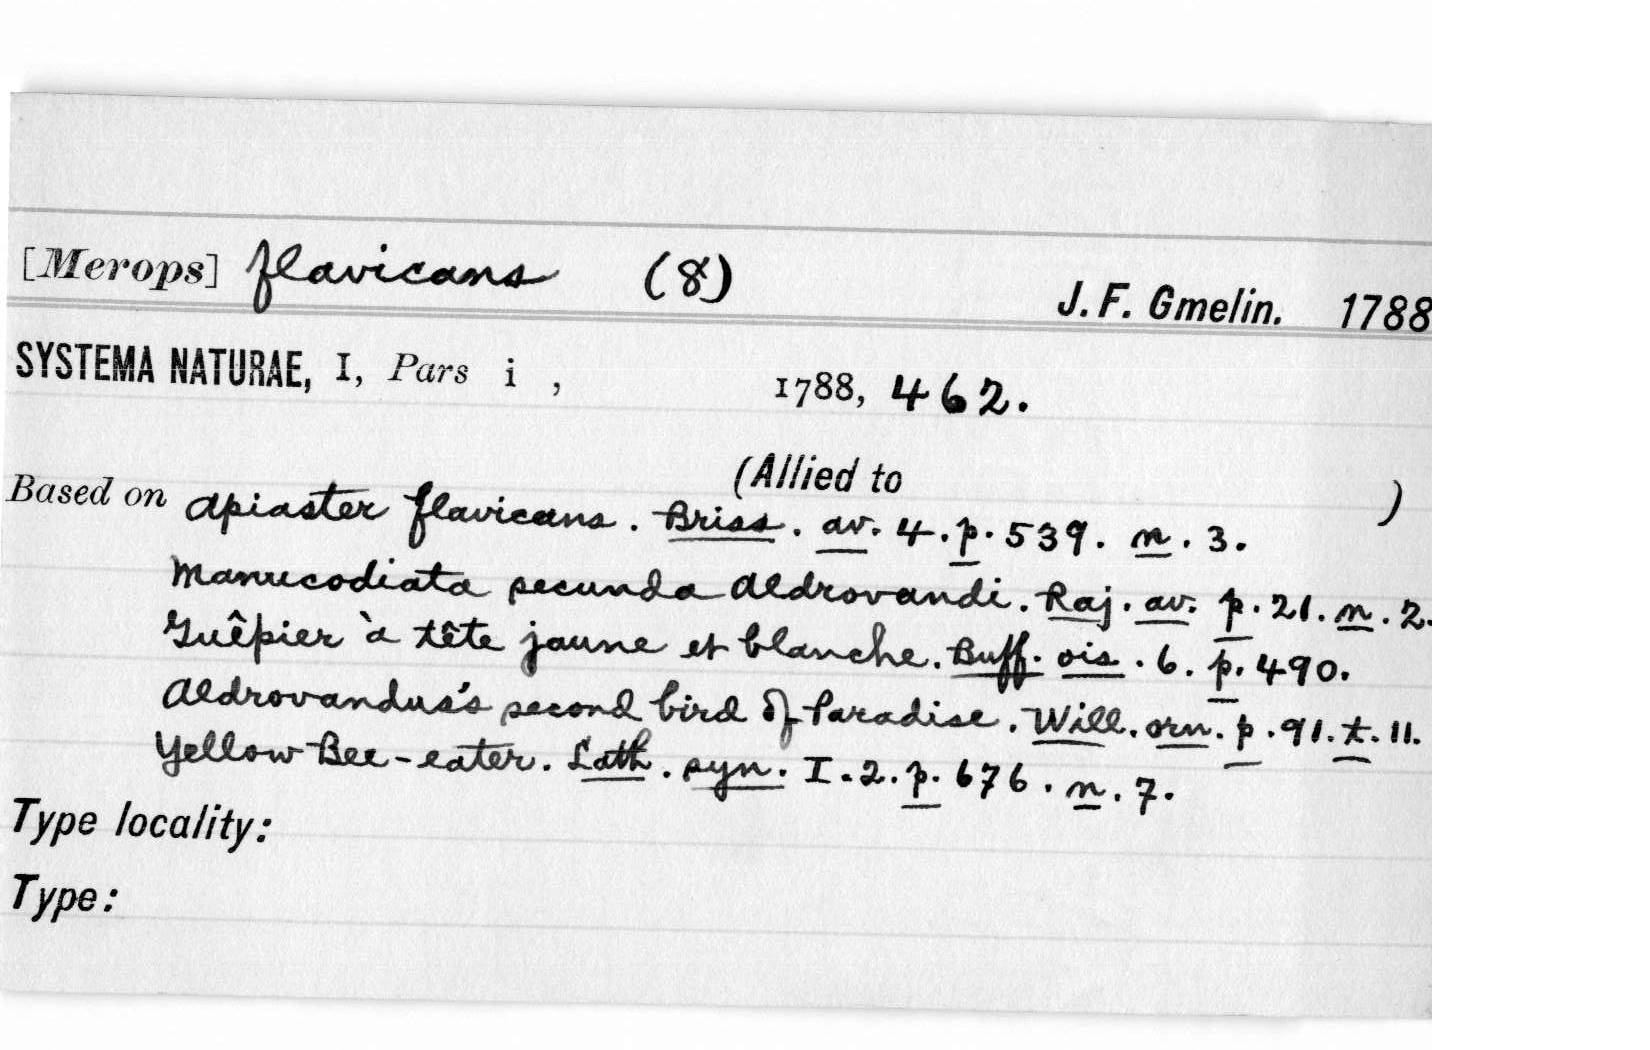 [Merops] flavicans (8)
J. F. Gmelin. 1788
SYSTEMA NATURAE, I, Pars i , 1788, 462.
(Allied to )
Based on Apiaster flavicans. Briss. av. 4. p. 539. n. 3.
Manucodiata secunda Aldrovandi. Raj. av. p. 21. n. 2.
Guêpier à tête jaune et blanche. Buff. ois. 6. p. 490.
Aldrovandus's second bird of Paradise. Will. orn. p. 91. t. 11.
Yellow Bee-eater. Lath. syn. I. 2. p. 676. n. 7.
Type locality:
Type: